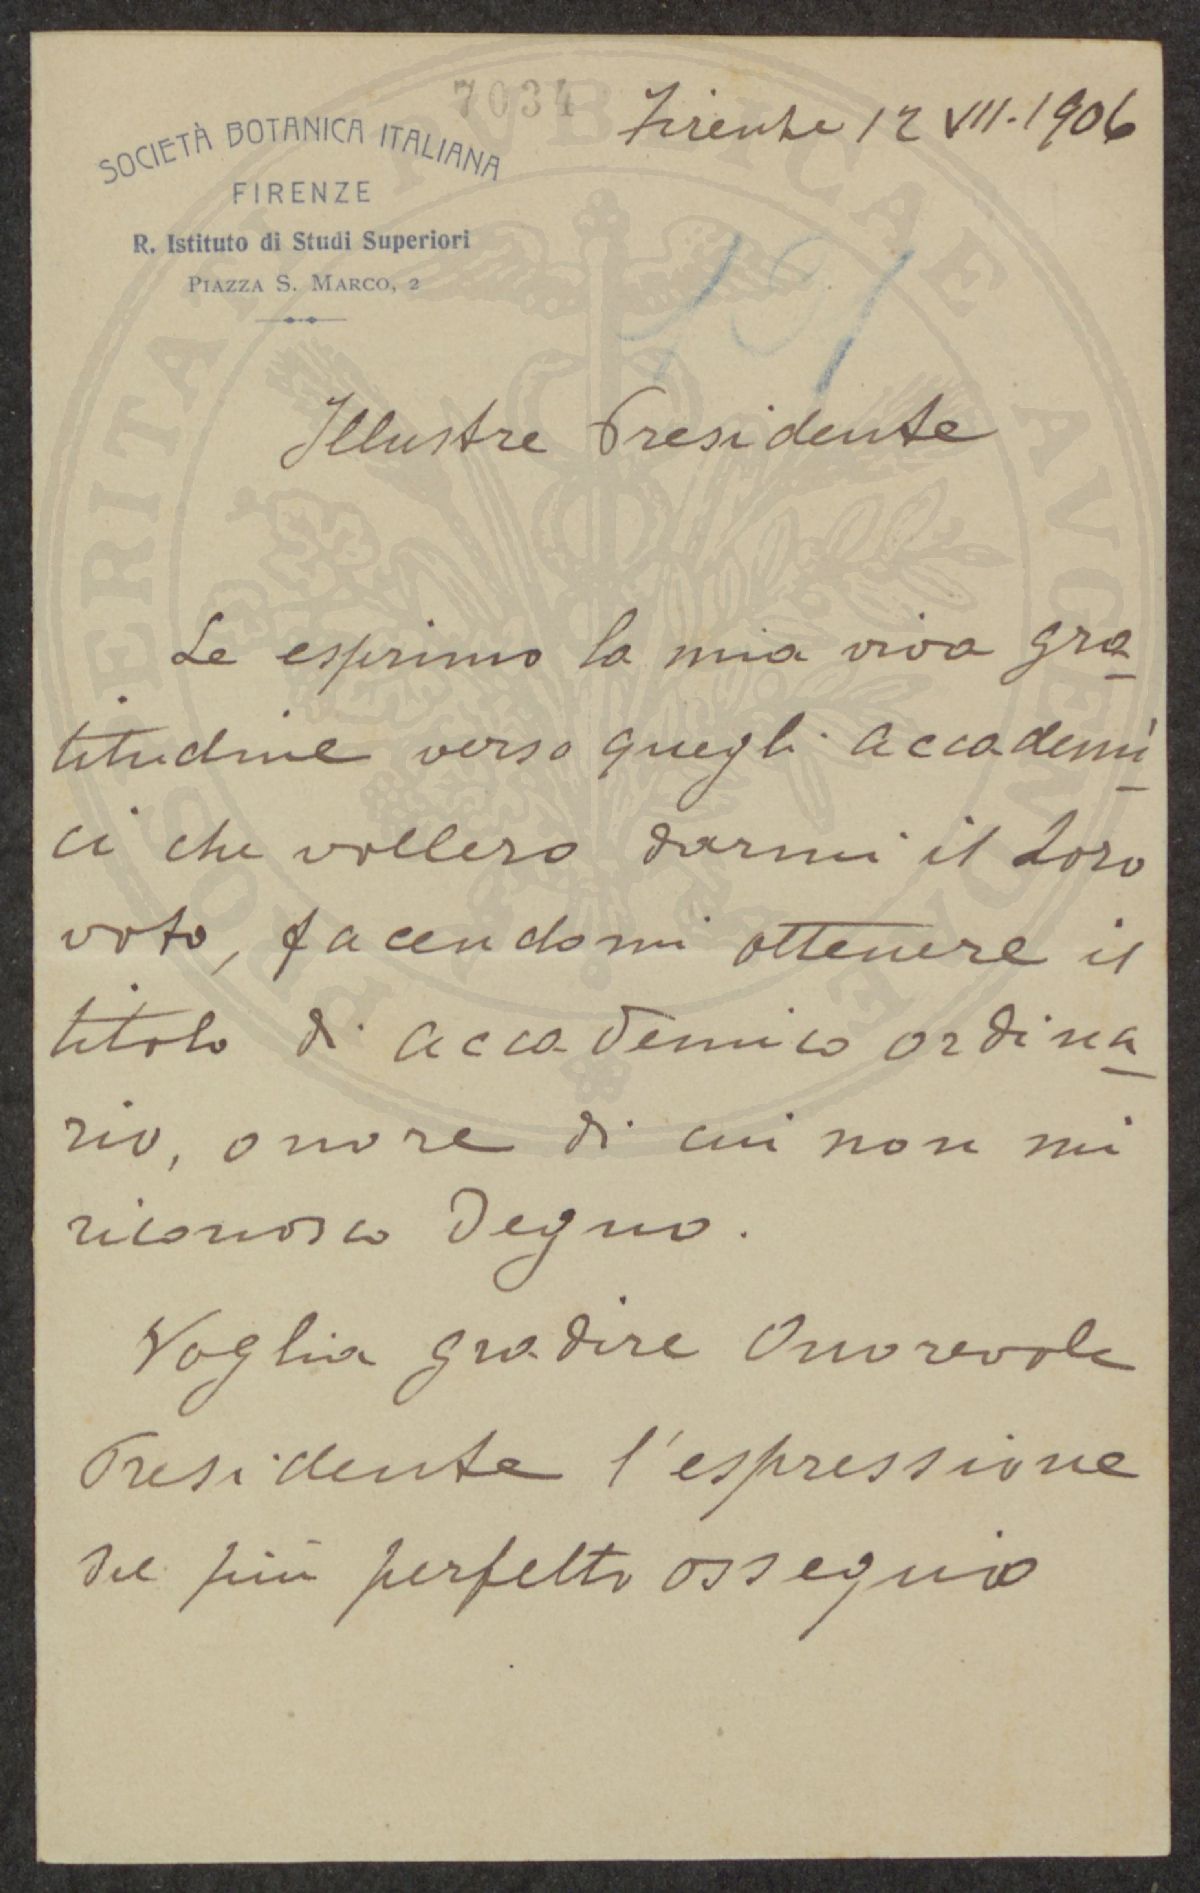 7034
Firenze 12 VII. 1906
SOCIETÀ BOTANICA ITALIANA
FIRENZE
R. Istituto di Studi Superiori
PIAZZA S. MARCO, 2
Illustre Presidente
Le esprimo la mia viva gra-
titudine verso quegli accademi-
ci che vollero darmi il Loro
voto, facendomi ottenere il
titolo di accademico ordina-
rio, onore di cui non mi
riconosco degno.
Voglia gradire Onorevole
Presidente l'espressione
del più perfetto ossequio
PROSPERITATI PVBLICAE AVGENDAE